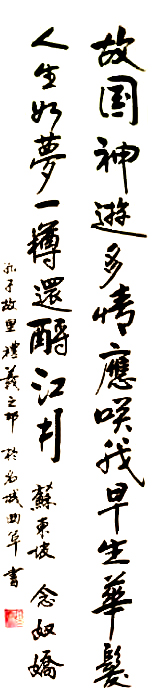 故国神遊多情應咲我早生華髮
人生如夢一樽還酹江月
蘇東坡 念奴嬌
孔子故里禮義之邦 於名城曲阜 書